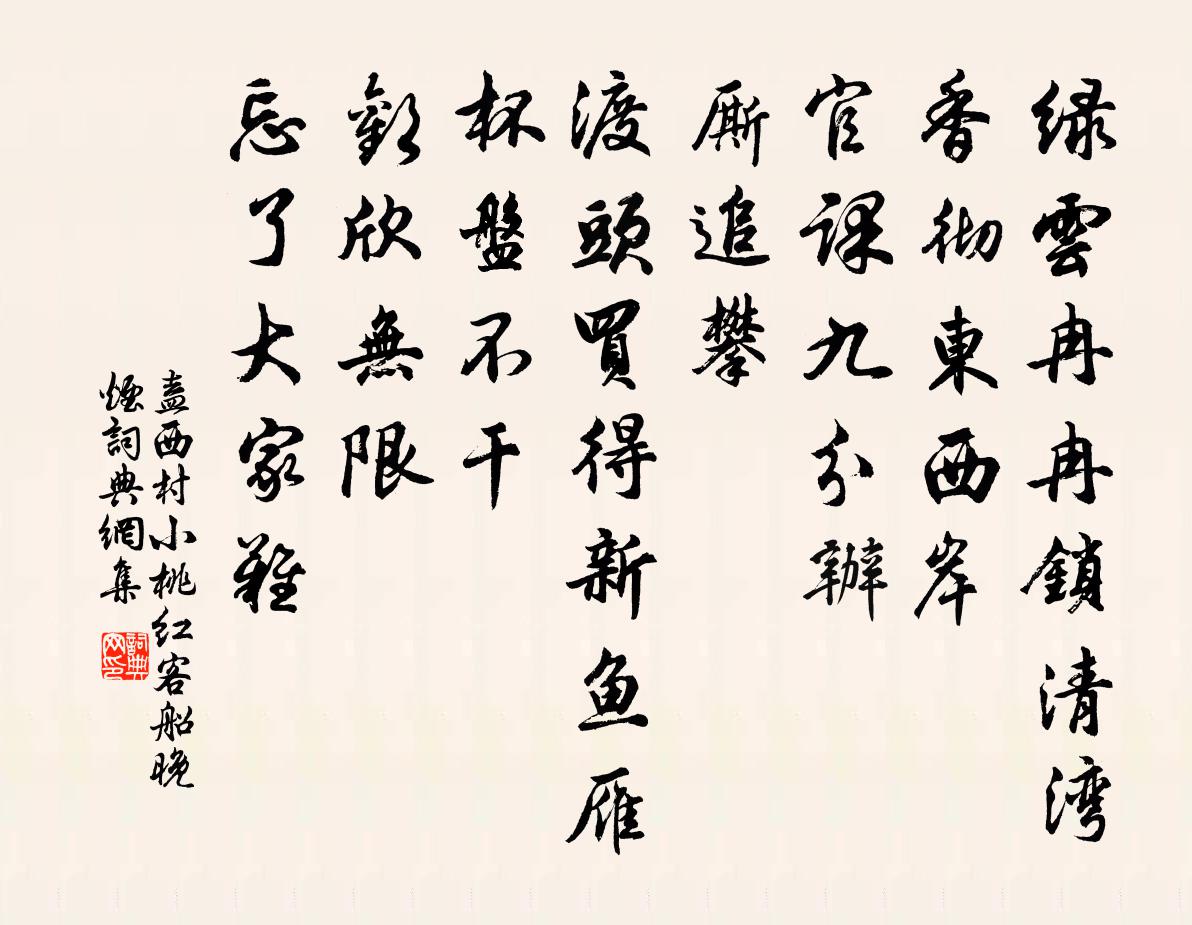 绿雲冉冉鎖清湾
香彻東西岸
官課九分辦
厮追攀
渡頭買得新鱼雁
杯盤不干
歡欣無限
忘了大家難
盍西村小桃红客船晚
煙詞典網集
詞典网印